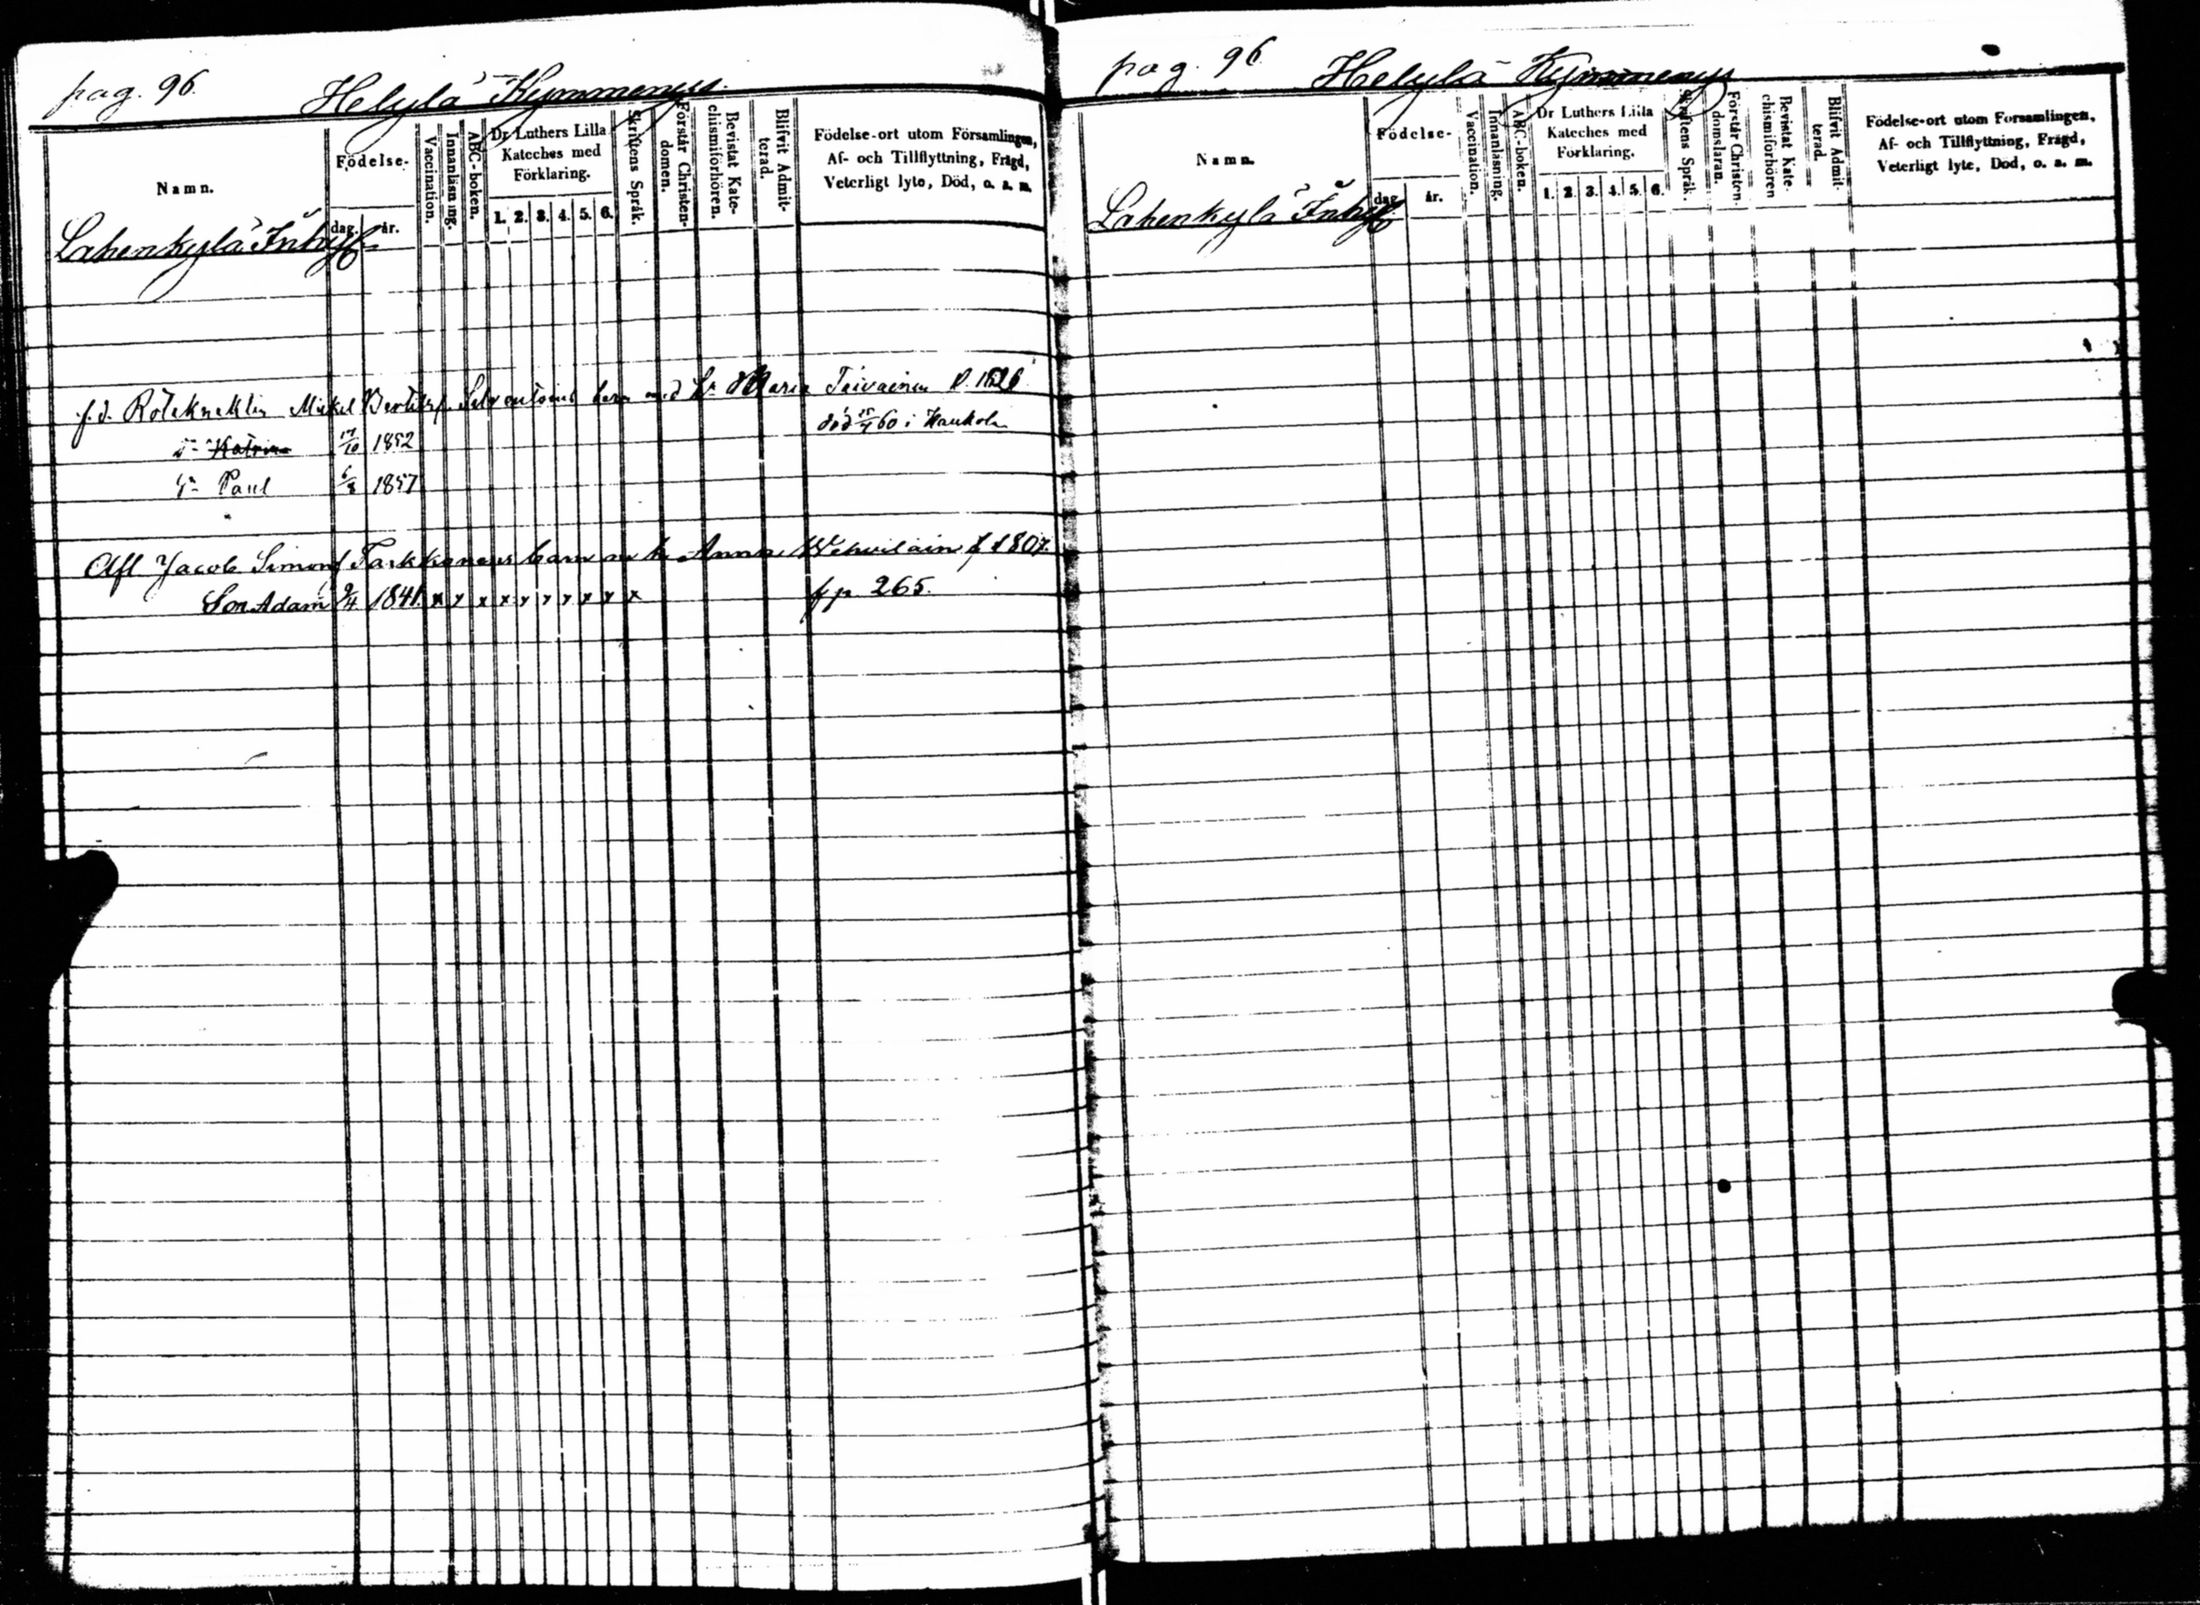 pag. 96. Helylä Kymmenys.
Namn.
Födelse-
dag. år.
Vaccination.
Innanläsning.
ABC-boken.
Dr Luthers Lilla
Kateches med
Förklaring.
1. 2. 3. 4. 5. 6.
Skriftens Språk.
Förstår Christen-
domen.
Bevistat Kate-
chismiförhören.
Blifvit Admit-
terad.
Födelse-ort utom Församlingen,
Af- och Tillflyttning, Frägd,
Veterligt lyte, Död, o. s. m.
Lahenkylä Inhys
f.d. Roteknekten Mickel barn med Maria Teivainen 1826
Katrina 17/10 1852 död 15/4 60 i Haukola
Paul 6/8 1857
Afl Jacob Simon Tarkkanens barn Anna Wehviläin f 1807.
Son Adam 9/4 1841 x x x x x x x x x x f p 265.
pag. 96 Helylä Kymmenys
Namn.
Födelse-
dag. år.
Vaccination.
Innanläsning.
ABC-boken.
Dr Luthers Lilla
Kateches med
Förklaring.
1. 2. 3. 4. 5. 6.
Skriftens Språk.
Förstår Christen-
domsläran.
Bevistat Kate-
chismiförhören
Blifvit Admit-
terad.
Födelse-ort utom Församlingen,
Af- och Tillflyttning, Frägd,
Veterligt lyte, Död, o. s. m.
Lahenkylä Inhys